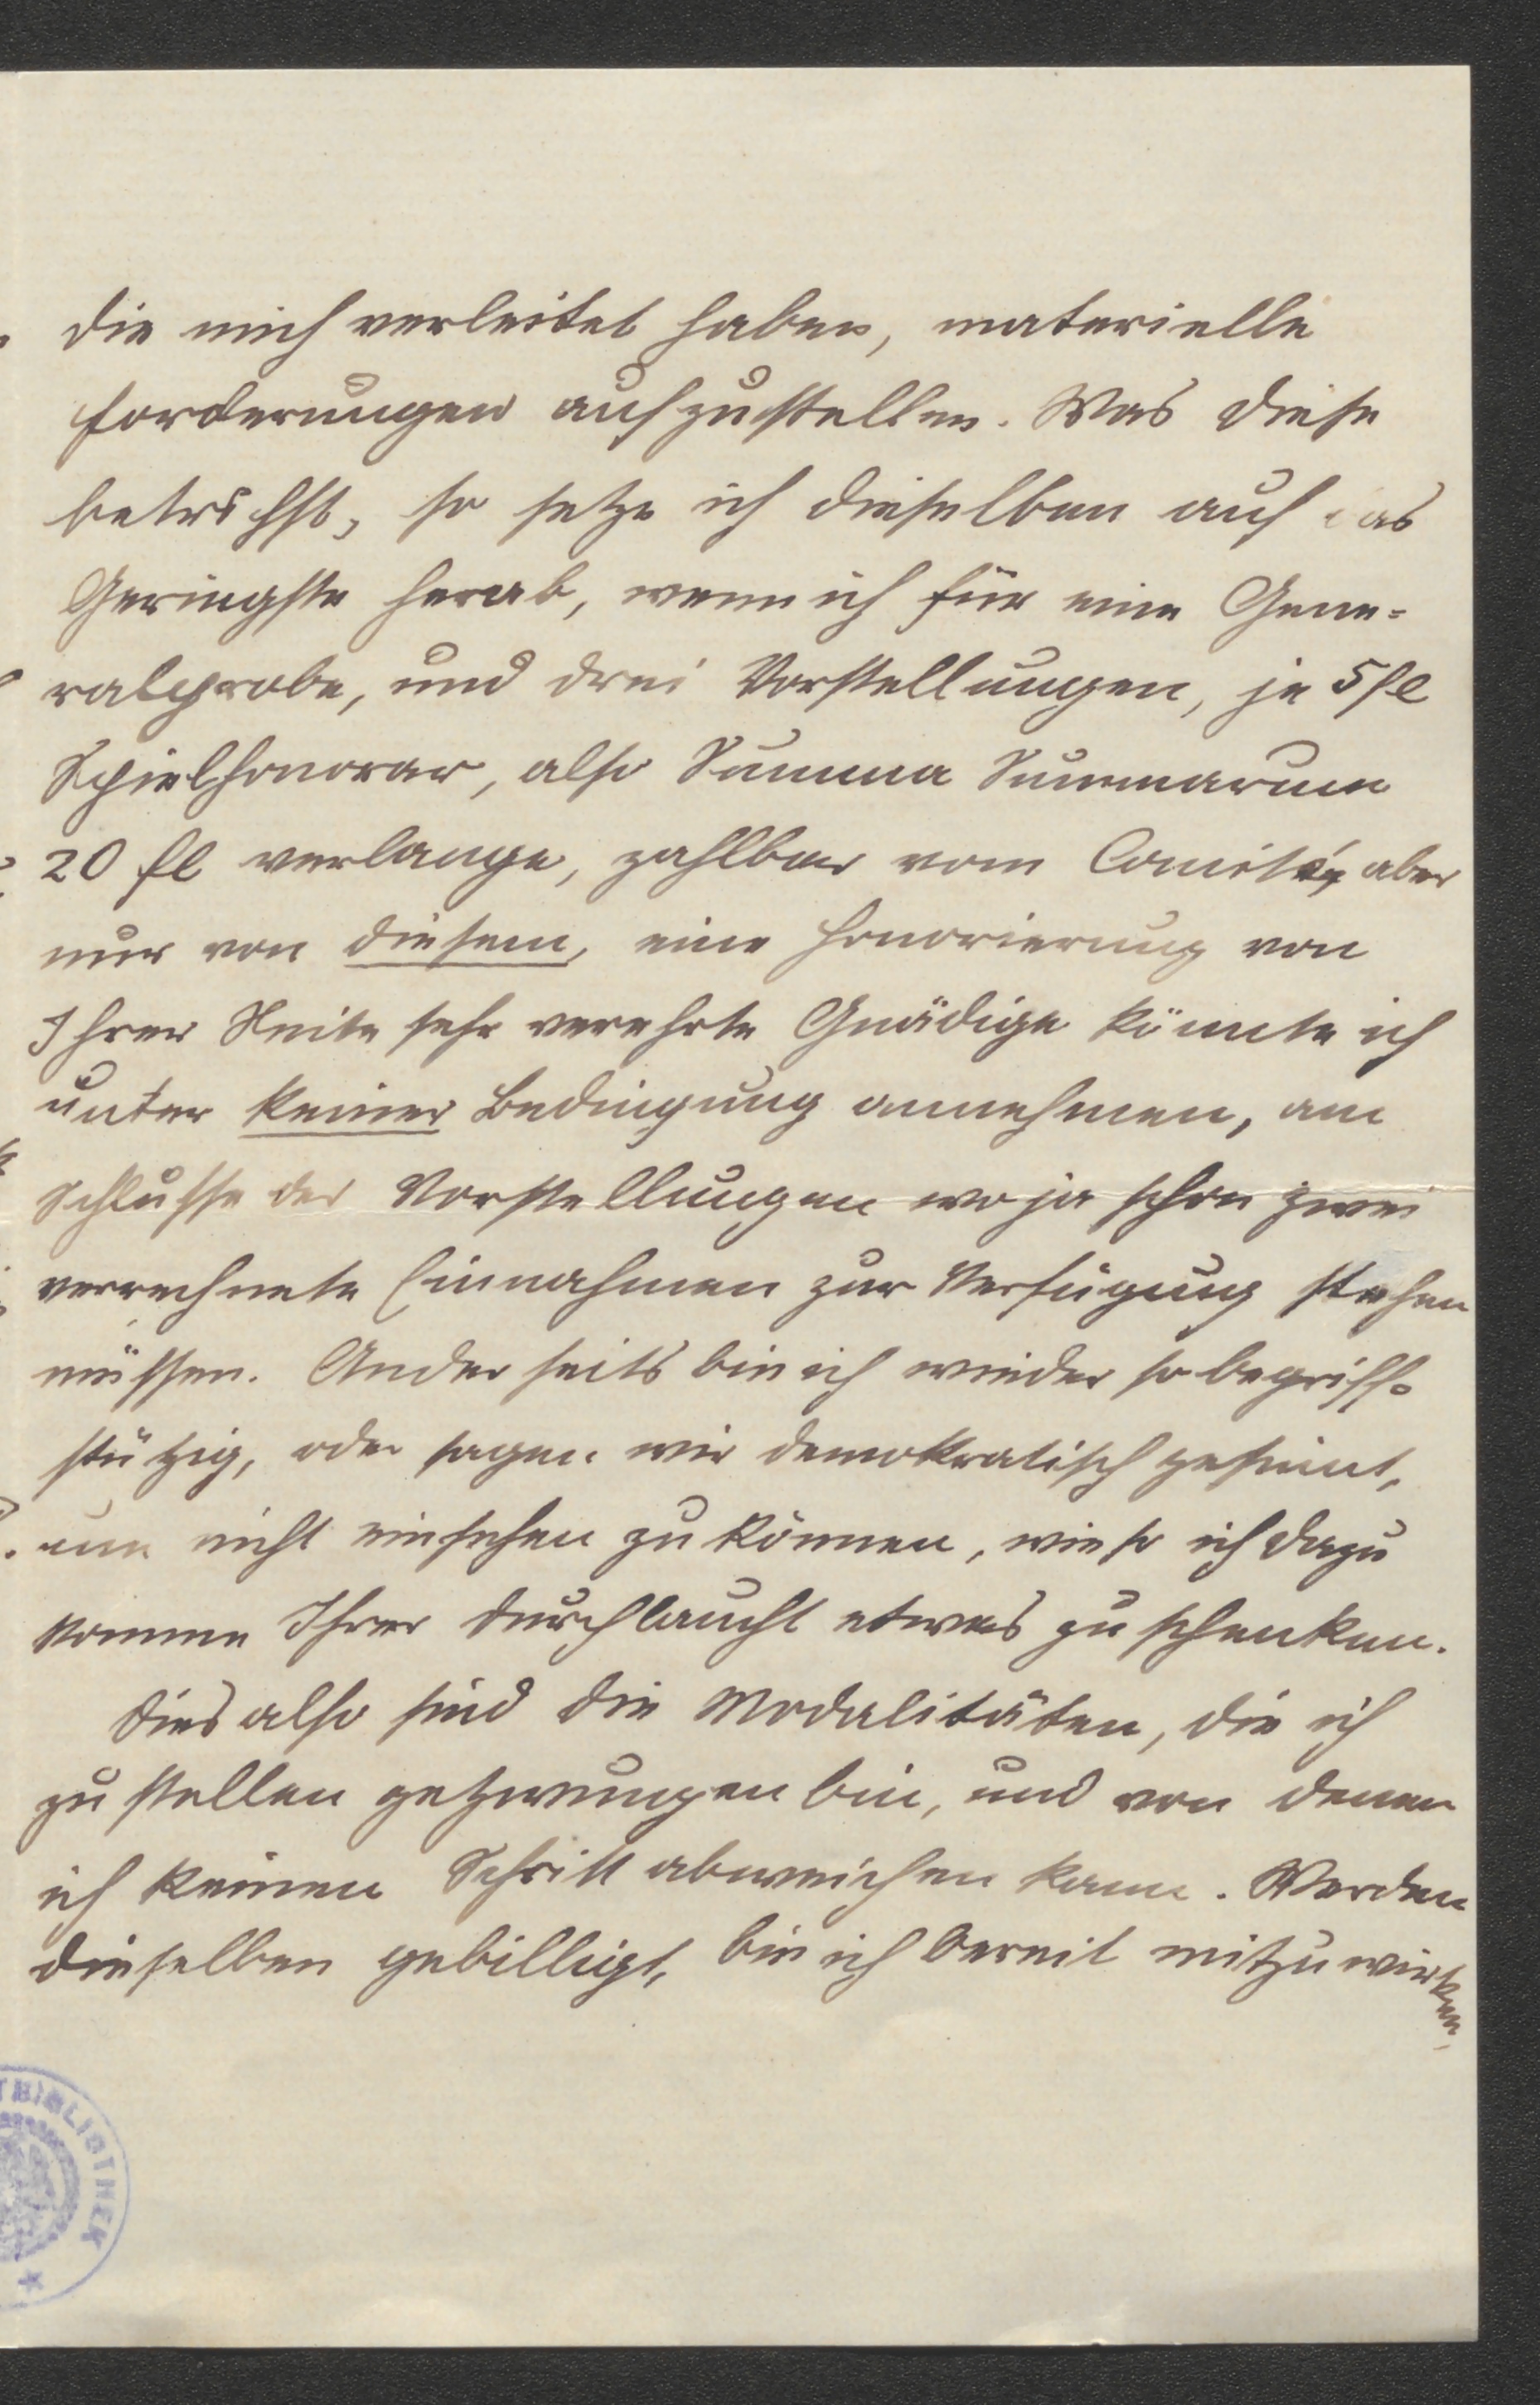 die mich verleitet haben, materielle
Forderungen aufzustellen. Was diese
betrifft, so setze ich dieselben auf das
Geringste herab, wenn ich für eine Gene-
ralprobe, und drei Vorstellungen, je 5 fl
Spielhonorar, also Summa Summarum
20 fl verlange, zahlbar vom Comité, aber
nur von diesem, eine Honorierung von
Ihrer Seite sehr verehrte Gnädige könnte ich
unter keiner Bedingung annehmen, am
Schlusse der Vorstellungen wo ja schon zwei
verrechnete Einnahmen zur Verfügung stehen
müssen. Anderseits bin ich wieder so begriff-
stützig, oder sagen wir demokratisch gesinnt,
um nicht einsehen zu können, wieso ich dazu
komme Ihrer Durchlaucht etwas zu schenken.
Dies also sind die Modalitäten, die ich
zu stellen gezwungen bin, und von denen
ich keinen Schritt abweichen kann. Werden
dieselben gebilligt, bin ich bereit mitzuwirken,
TBIBLIOTHEK